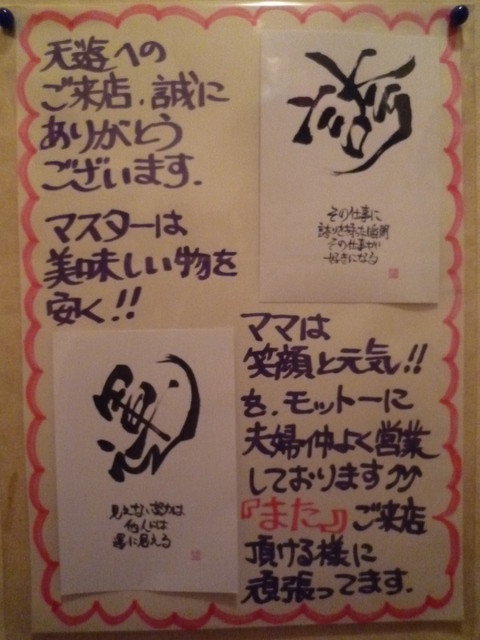 天遊への
ご来店、誠に
ありがとう
ございます.
マスターは
美味しい物を
安く!!
誇
その仕事に
誇りを持った瞬間
その仕事が
好きになる
ママは
笑顔と元気!!
を、モットーに
夫婦仲よく営業
しております
『また。』ご来店
頂ける様に
頑張ってます.
運
見えない努力は
他人には
運に見える